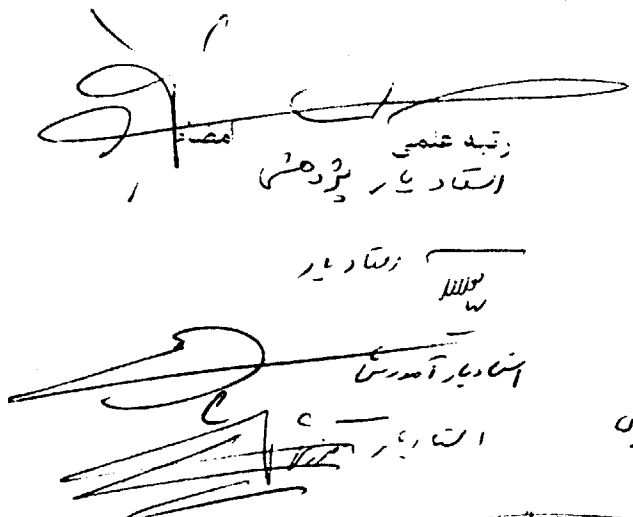 رتبه علمی امضاء
استاد یار پژوهشی
استاد یار
استادیار آموزشی
استادیار